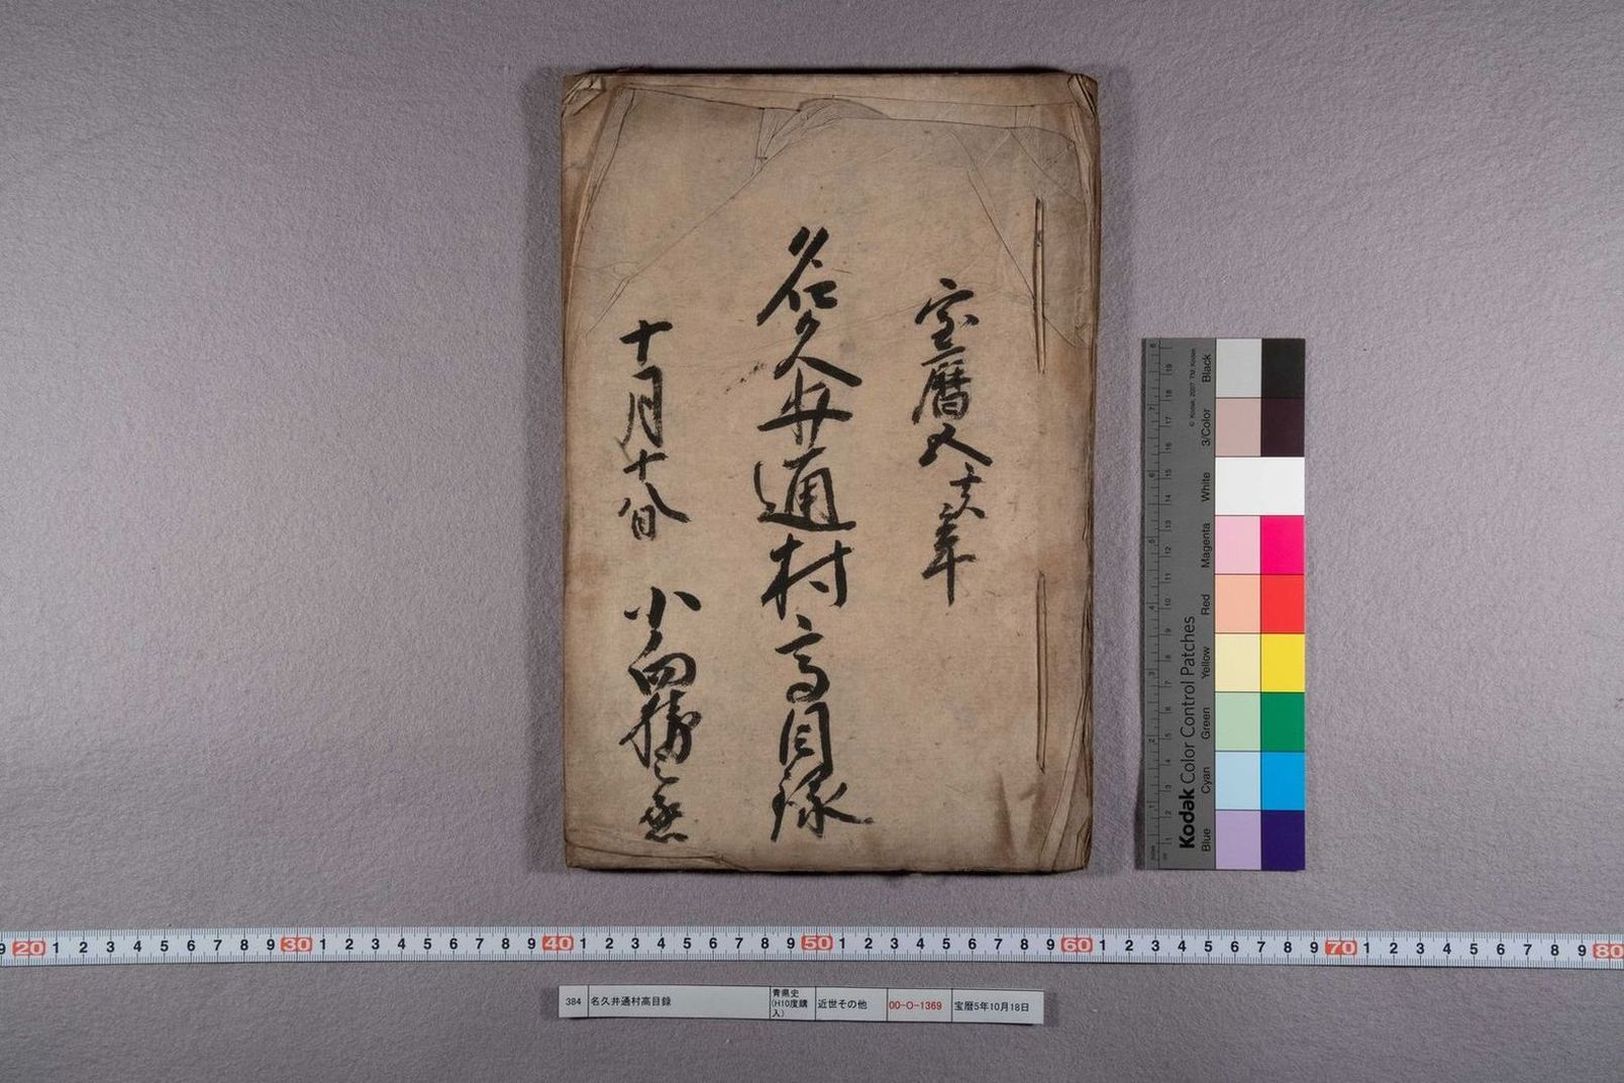 宝暦五亥年
名久井通村高目録
十月十八日 小向勝之丞
Kodak Color Control Patches
© Kodak, 2007 TM: Kodak
Blue Cyan Green Yellow Red Magenta White 3/Color Black
9 20 1 2 3 4 5 6 7 8 9 30 1 2 3 4 5 6 7 8 9 40 1 2 3 4 5 6 7 8 9 50 1 2 3 4 5 6 7 8 9 60 1 2 3 4 5 6 7 8 9 70 1 2 3 4 5 6 7 8 9 80
384 名久井通村高目録 青県史(H10度購入) 近世その他 00-O-1369 宝暦5年10月18日